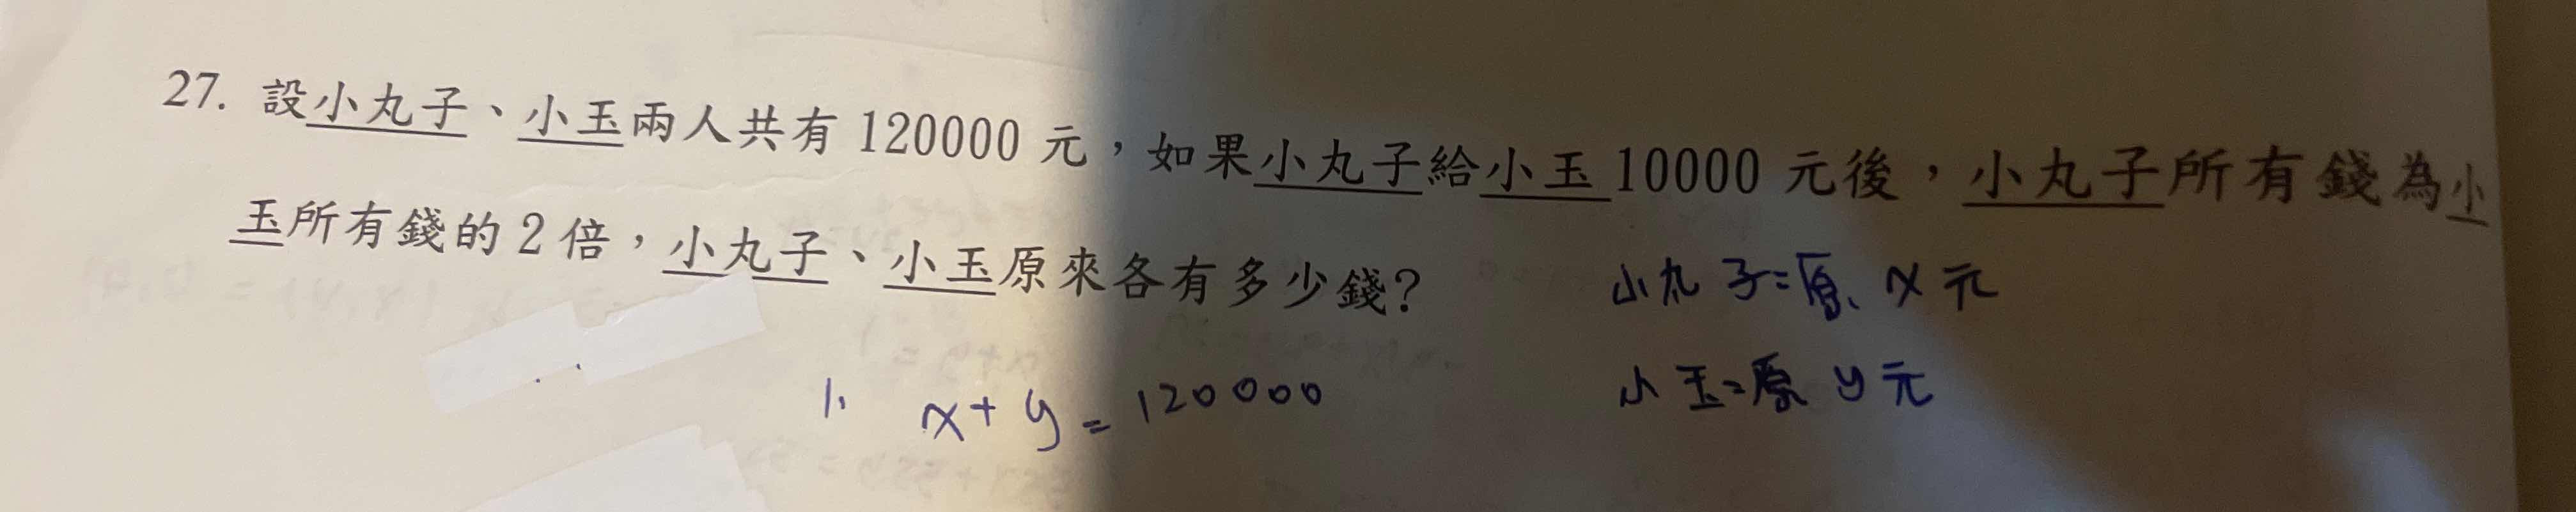 27. 設小丸子、小玉兩人共有 120000 元，如果小丸子給小玉 10000 元後，小丸子所有錢為小
玉所有錢的 2 倍，小丸子、小玉原來各有多少錢？
小丸子=原、x元
小玉=原 y元
1. x+y=120000